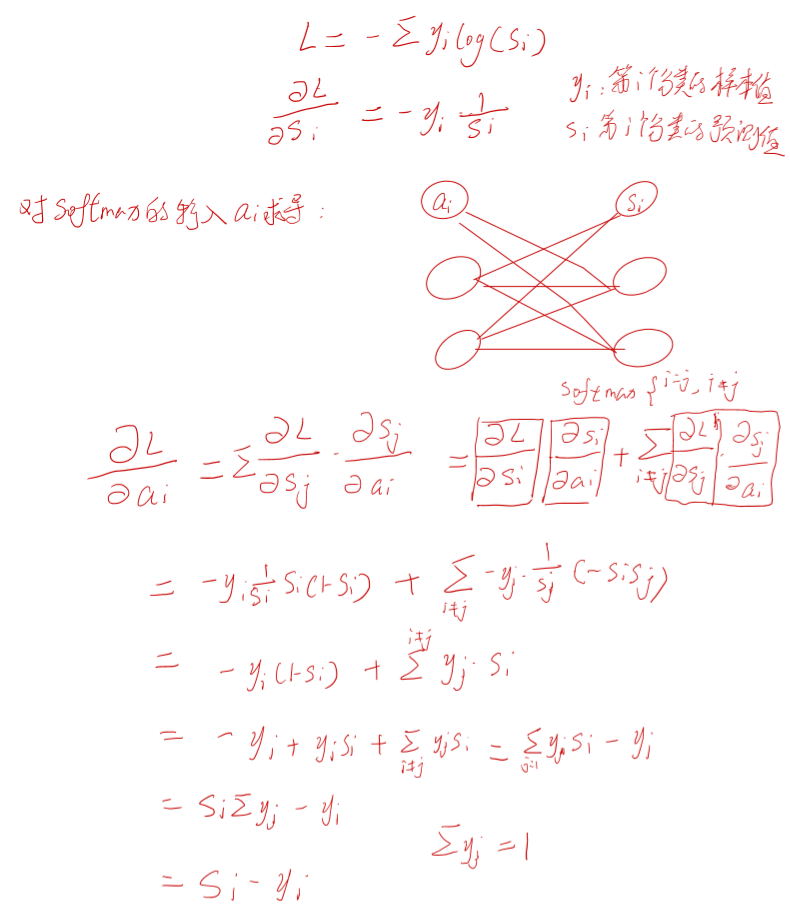 L = - Σ yᵢ log(Sᵢ)
∂L/∂Sᵢ = - yᵢ 1/Sᵢ
yᵢ: 第i个类的样本值
Sᵢ 第i个类的预测值
对softmax的输入 aᵢ求导:
aᵢ Sᵢ
softmax { i=j, i≠j
∂L/∂aᵢ = Σ ∂L/∂Sⱼ · ∂Sⱼ/∂aᵢ = ∂L/∂Sᵢ ∂Sᵢ/∂aᵢ + Σ_{i≠j} ∂L/∂Sⱼ · ∂Sⱼ/∂aᵢ
= -yᵢ 1/Sᵢ Sᵢ(1-Sᵢ) + Σ_{i≠j} -yⱼ · 1/Sⱼ (-SᵢSⱼ)
= -yᵢ(1-Sᵢ) + Σ^{i≠j} yⱼ · Sᵢ
= -yᵢ + yᵢSᵢ + Σ_{i≠j} yⱼSᵢ = Σ_{j=1} yⱼSᵢ - yᵢ
= SᵢΣyⱼ - yᵢ
Σyⱼ = 1
= Sᵢ - yᵢ